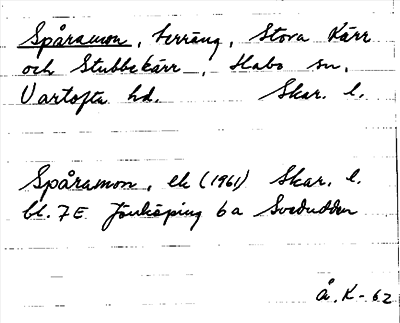 Spåramon, terräng, Stora Kärr
och Stubbekärr, Habo sn,
Vartofta hd. Skar. l.
Spåramon, ek (1961) Skar. l.
bl. 7E Jönköping 6a Svedudden
Å. K-62